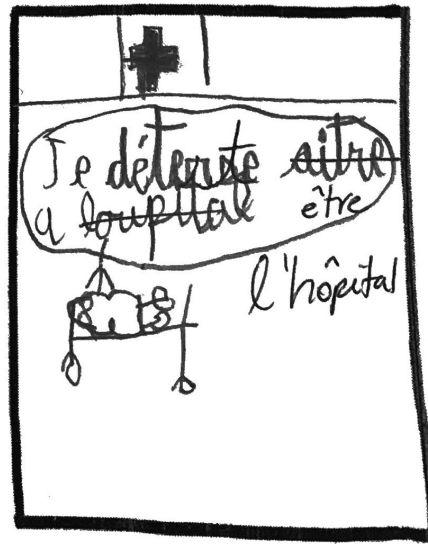 Je déteste aitre
a loupital être
l'hôpital